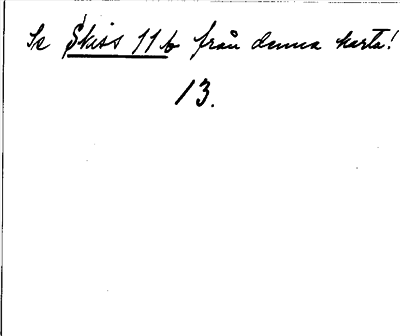 Se Skiss 11b från denna karta!
13.